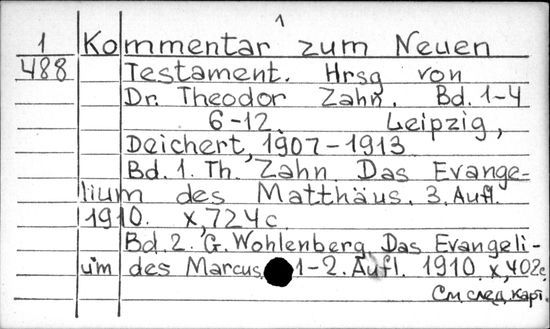 1
1 Kommentar zum Neuen
488 Testament. Hrsg von
Dr. Theodor Zahn. Bd. 1-4
6-12. Leipzig,
Deichert, 1907-1913
Bd. 1. Th. Zahn. Das Evange-
lium des Matthäus. 3. Aufl.
1910. X, 724 c
Bd. 2. G. Wohlenberg. Das Evangeli-
um des Marcus. 1-2. Aufl. 1910. X, 402 c.
См. след. карт.